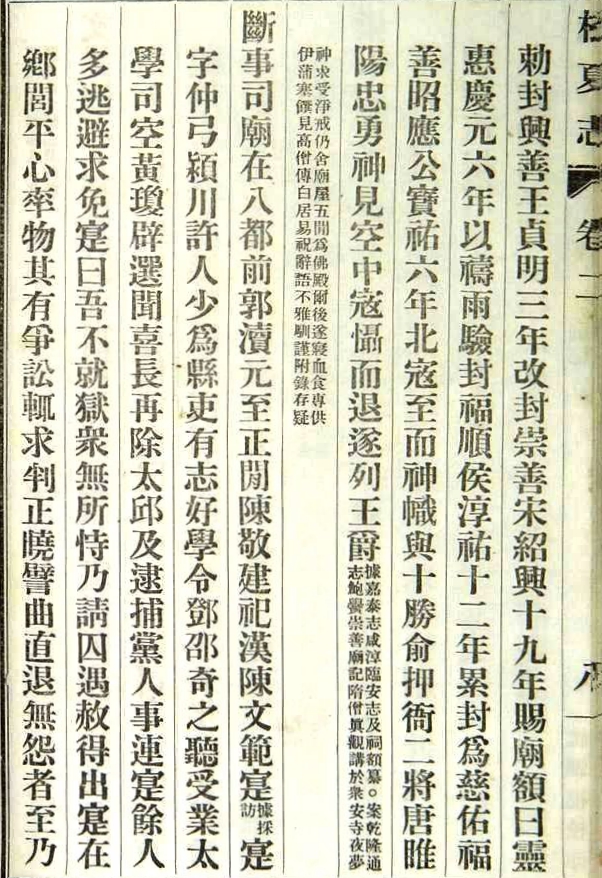 夏志
卷二
八
勅封興善王貞明三年改封崇善宋紹興十九年賜廟額曰靈
惠慶元六年以禱雨驗封福順侯淳祐十二年累封爲慈佑福
善昭應公寶祐六年北寇至而神幟與十勝俞抑衙二將唐睢
陽忠勇神見空中寇懾而退遂列王爵
據嘉泰志咸淳臨安志及祠額纂○案乾隆通
志鮑礐崇善廟記隋僧眞觀講於衆安寺夜夢
神求受淨戒仍舍廟屋五間爲佛殿爾後遂寢血食專供
伊蒲塞饌見高僧傳白居易祝辭語不雅馴謹附錄存疑
斷事司廟在八都前郭瀆元至正閒陳敬建祀漢陳文範寔
據採
訪
寔
字仲弓潁川許人少爲縣吏有志好學令鄧邵奇之聽受業太
學司空黃瓊辟選聞喜長再除太邱及逮捕黨人事連寔餘人
多逃避求免寔曰吾不就獄衆無所恃乃請囚遇赦得出寔在
鄉閭平心率物其有爭訟輒求判正曉譬曲直退無怨者至乃